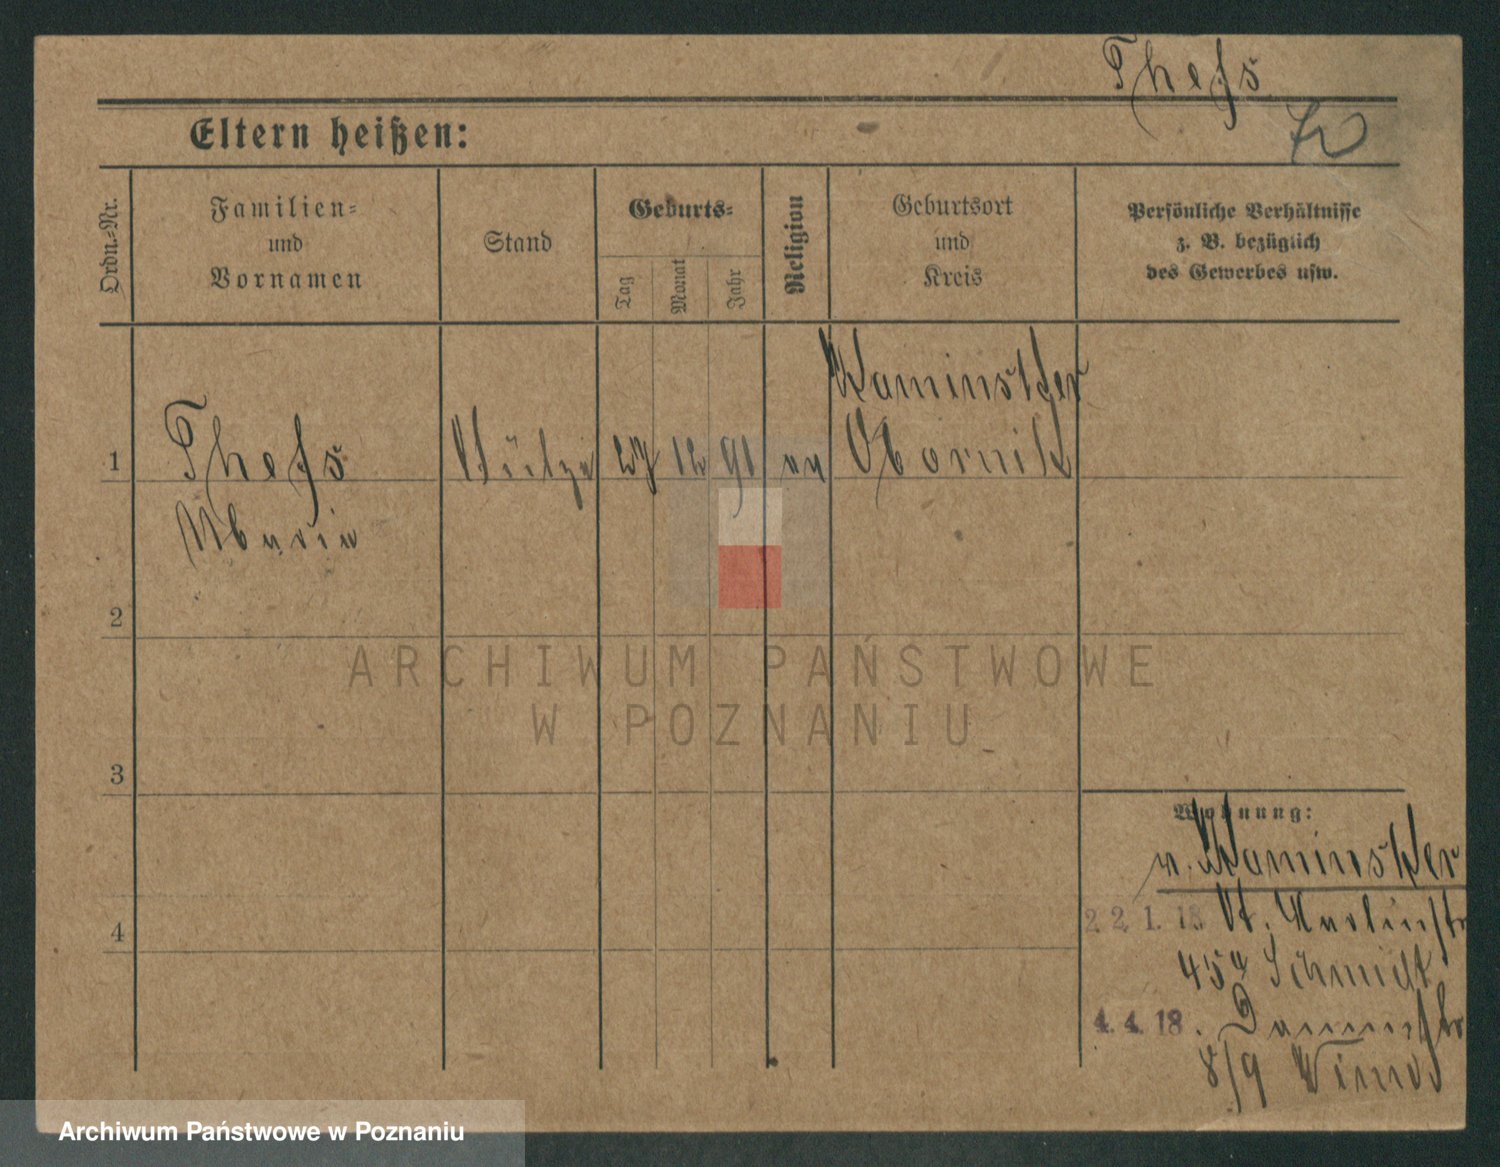 Thefs
Eltern heißen:
Ordn.-Nr.
Familien-
und
Vornamen
Stand
Geburts-
Tag
Monat
Jahr
Religion
Geburtsort
und
Kreis
Persönliche Verhältnisse
z. B. bezüglich
des Gewerbes usw.
Kaminsker
1 Thefs Stütze 27 12 91 ev Obornik
Maria
2
ARCHIWUM PAŃSTWOWE
W POZNANIU
3
Wohnung:
v. Kaminsker
4
22.1.18. St. Martinstr
45 Schmidt
4.4.18.
8/9
Archiwum Państwowe w Poznaniu